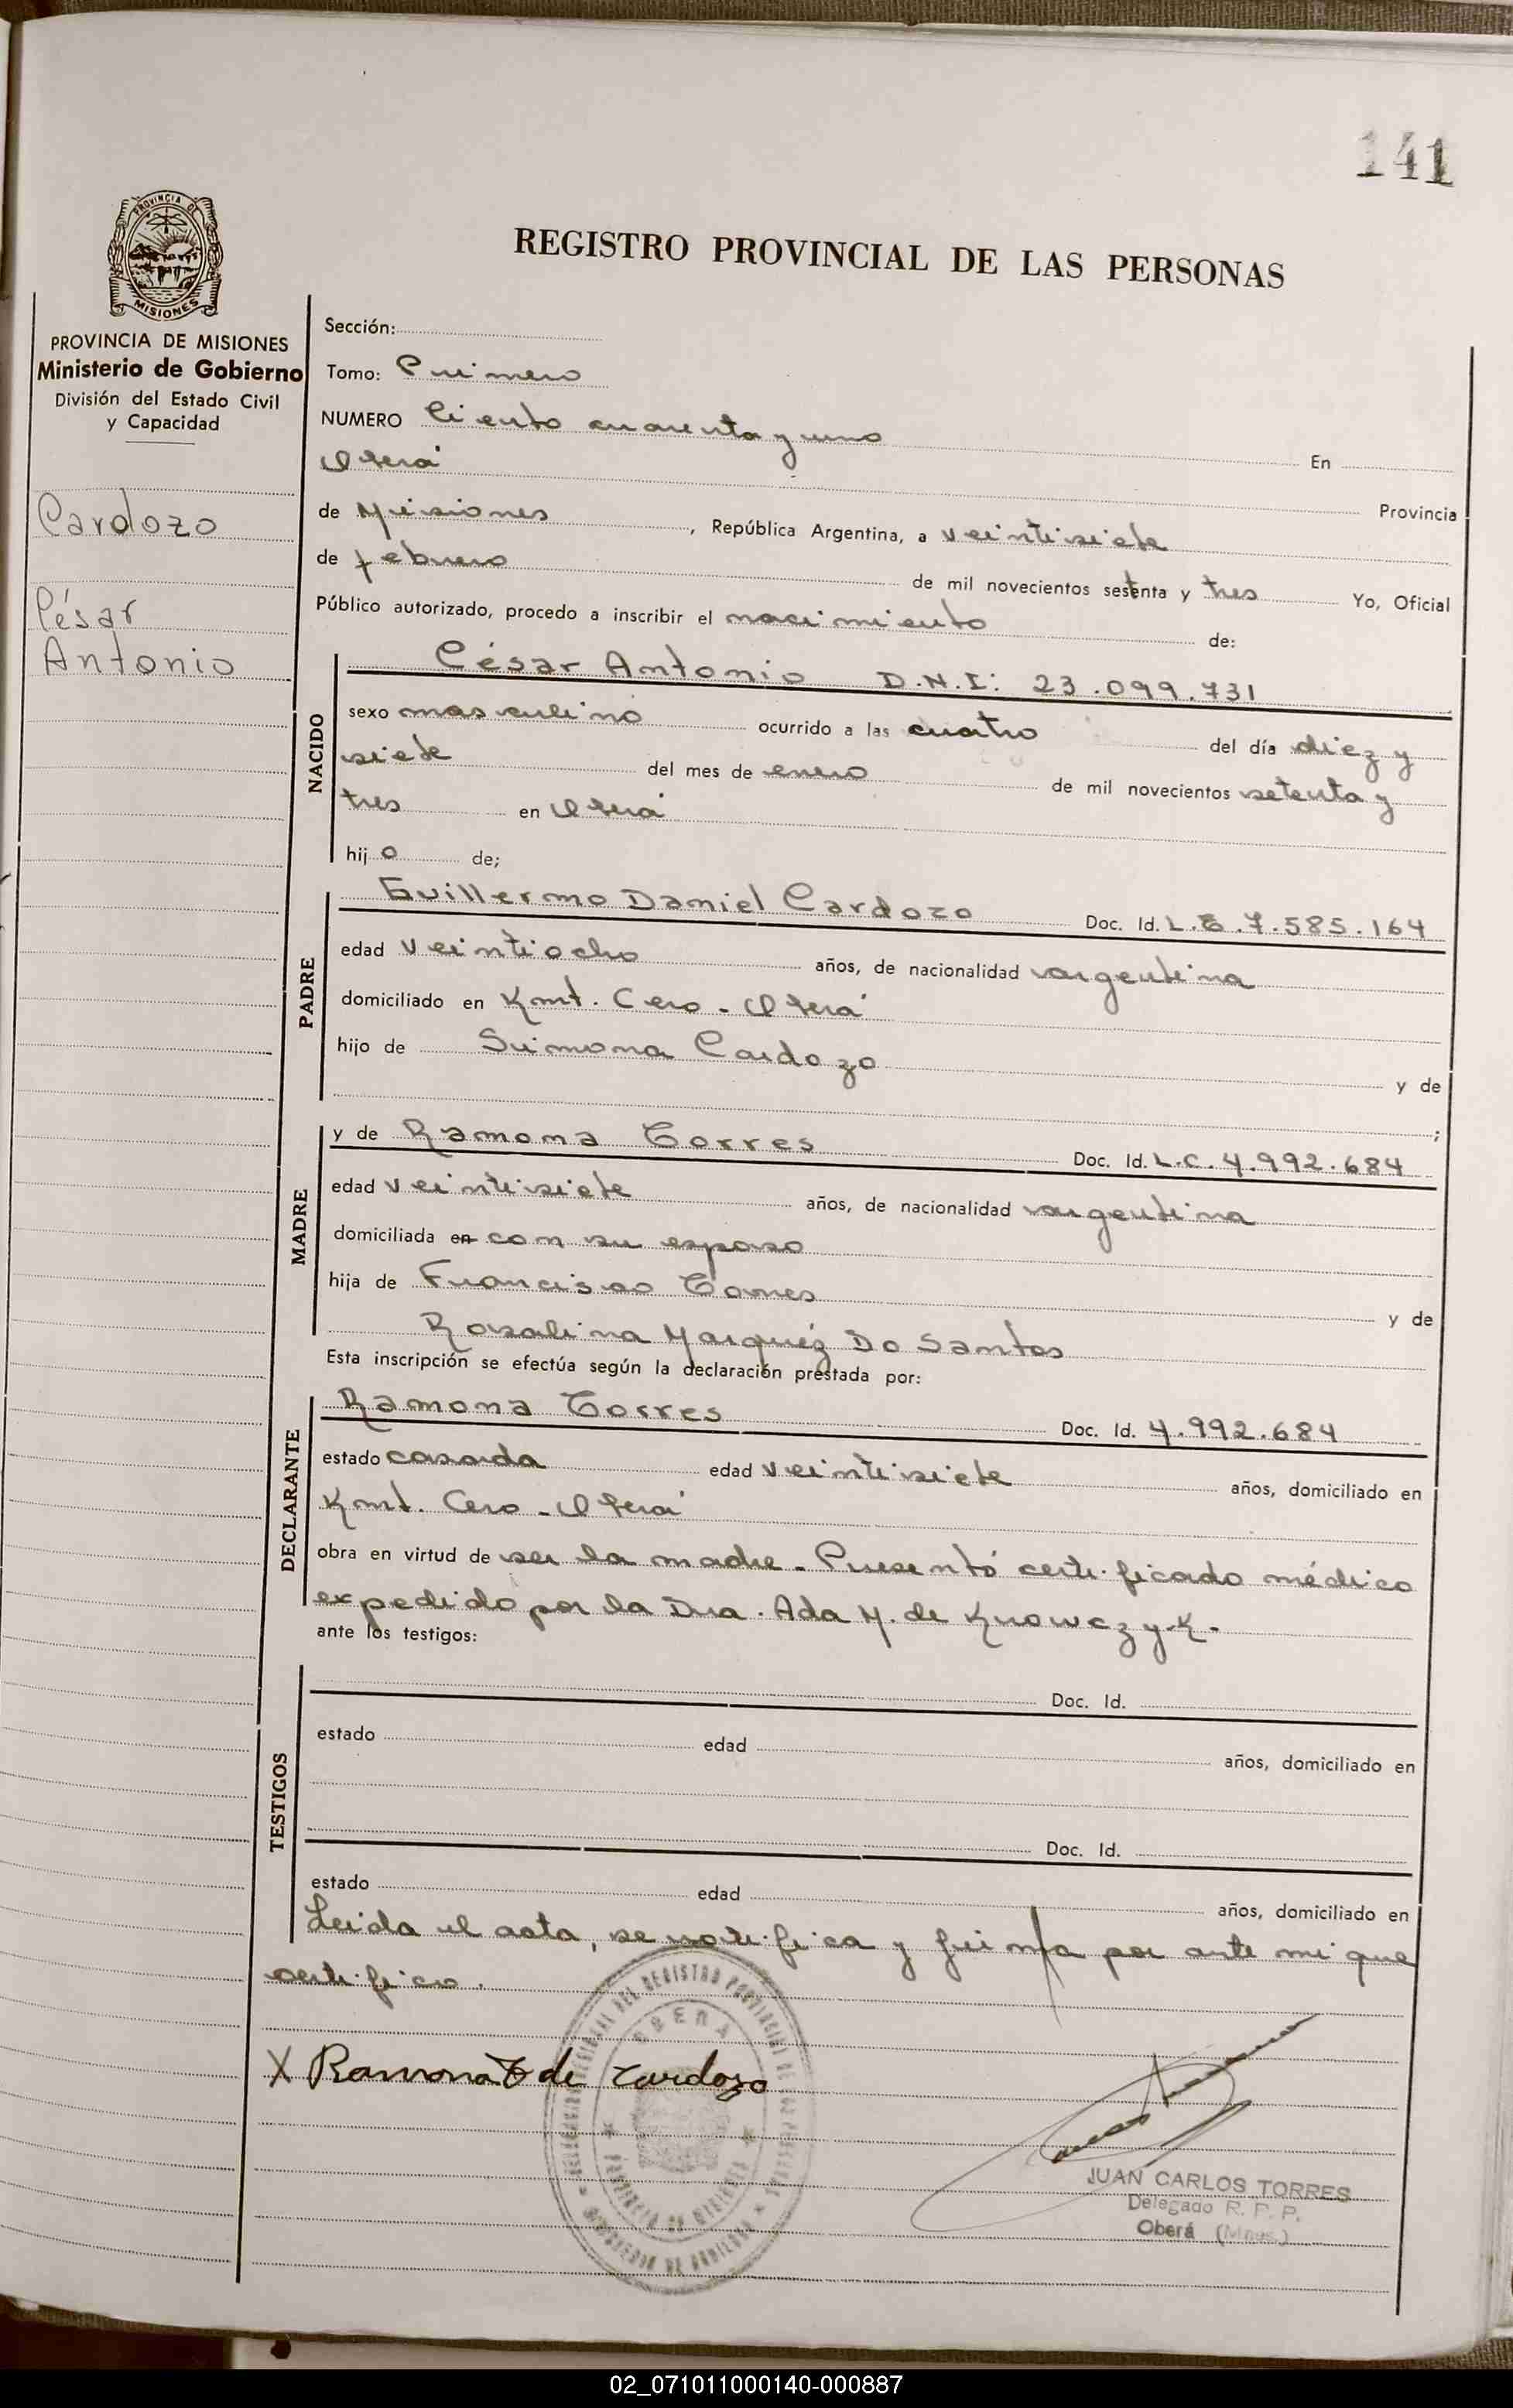 141
PROVINCIA DE
MISIONES
REGISTRO PROVINCIAL DE LAS PERSONAS
PROVINCIA DE MISIONES
Ministerio de Gobierno
División del Estado Civil
y Capacidad
Cardozo
César
Antonio
Sección:
Tomo: Primero
NUMERO Ciento cuarenta y uno En
Oberá Provincia
de Misiones, República Argentina, a veintisiete
de febrero de mil novecientos setenta y tres Yo, Oficial
Público autorizado, procedo a inscribir el nacimiento de:
NACIDO
César Antonio D.N.I: 23.099.731
sexo masculino ocurrido a las cuatro del día diez y
siete del mes de enero de mil novecientos setenta y
tres en Oberá
hijo de;
PADRE
Guillermo Daniel Cardozo Doc. Id. L.E.7.585.164
edad veintiocho años, de nacionalidad argentina
domiciliado en Kmt. Cero - Oberá
hijo de Simona Cardozo y de
;
MADRE
y de Ramona Torres Doc. Id. L.C.4.992.684
edad veintisiete años, de nacionalidad argentina
domiciliada en con su esposo
hija de Francisco Torres y de
Rosalina Marquéz Do Santos
Esta inscripción se efectúa según la declaración prestada por:
DECLARANTE
Ramona Torres Doc. Id. 4.992.684
estado casada edad veintisiete años, domiciliado en
Kmt. Cero - Oberá
obra en virtud de ser la madre - Presentó certificado médico
expedido por la Dra. Ada M. de Krowczyk.
ante los testigos:
TESTIGOS
Doc. Id.
estado edad años, domiciliado en
Doc. Id.
estado edad años, domiciliado en
Leida el acta, se notifica y firma por ante mi que
certifico.
X Ramona T de Cardozo
OBERA
PROVINCIA DE MISIONES
JUAN CARLOS TORRES
Delegado R. P. P.
Oberá (Mnes.)
02_071011000140-000887